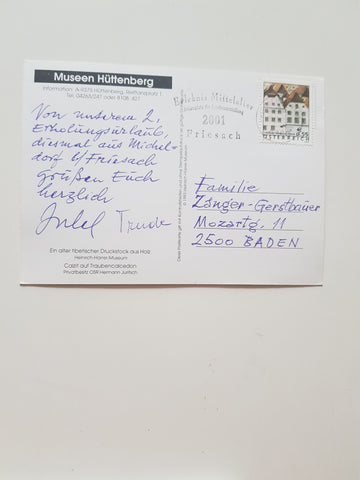 Museen Hüttenberg
Information: A-9375 Hüttenberg, Reiftanzplatz 1
Tel. 04263/247 oder 8108, 427
Von unserem 2.
Erholungsurlaub,
diesmal aus Michel-
dorf b/Friesach
grüßen Euch
herzlich
Trude
Ein alter tibetischer Druckstock aus Holz
Heinrich-Harrer-Museum
Calzit auf Traubencalcedon
Privatbesitz OSR Hermann Juritsch
Erlebnis Mittelalter
2001
Friesach
ÖSTERREICH
Familie
Zänger-Gerstbauer
Mozartg. 11
2500 BADEN